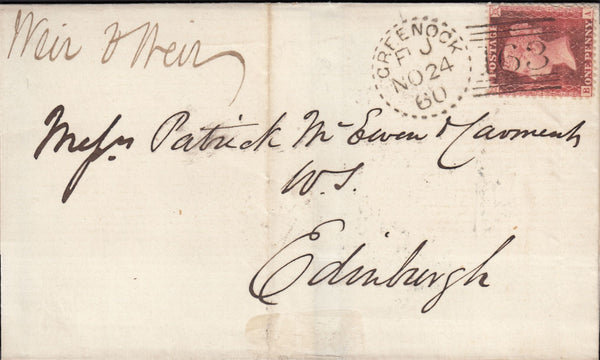 Weir & Weir
GREENOCK
F J
NO 24
60
POSTAGE
163
ONE PENNY
Messrs Patrick McEwen & Carment
W.S.
Edinburgh